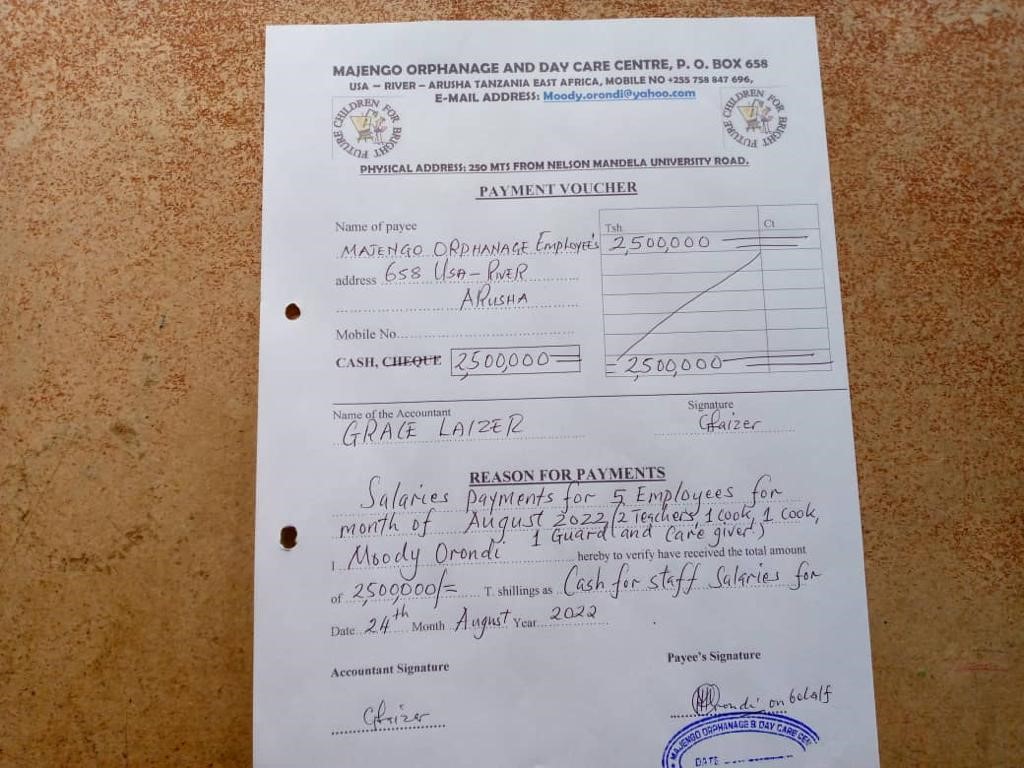 MAJENGO ORPHANAGE AND DAY CARE CENTRE, P. O. BOX 658
USA – RIVER – ARUSHA TANZANIA EAST AFRICA, MOBILE NO +255 758 847 696,
E-MAIL ADDRESS: Moody.orondi@yahoo.com
FUTURE CHILDREN FOR BRIGHT
FUTURE CHILDREN FOR BRIGHT
PHYSICAL ADDRESS: 250 MTS FROM NELSON MANDELA UNIVERSITY ROAD.
PAYMENT VOUCHER
Name of payee
Tsh Ct
MAJENGO ORPHANAGE Employee's 2,500,000
address 658 USA-RIVER
ARUSHA
Mobile No
CASH, CHEQUE 2,500,000 2,500,000
Name of the Accountant Signature
GRACE LAIZER GLaizer
REASON FOR PAYMENTS
Salaries payments for 5 Employees for
month of August 2022 (2 Teachers, 1 cook, 1 cook,
1 Guard and care giver)
I Moody Orondi hereby to verify have received the total amount
of 2,500,000/= T. shillings as Cash for staff Salaries for
Date 24th Month August Year 2022
Accountant Signature Payee's Signature
GLaizer Orondi on behalf
MAJENGO ORPHANAGE & DAY CARE CEN
DATE